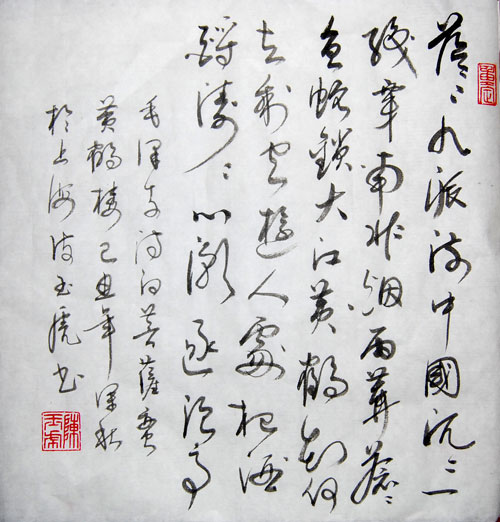 茫〻九派流中國沉〻一
綫穿南北烟雨莽蒼〻
龜蛇鎖大江黄鶴知何
去剩有遊人處把酒
酹滔〻心潮逐浪高
毛澤東詩詞菩薩蠻
黄鶴樓己丑年深秋
於上海陳玉虎書
陳玉虎